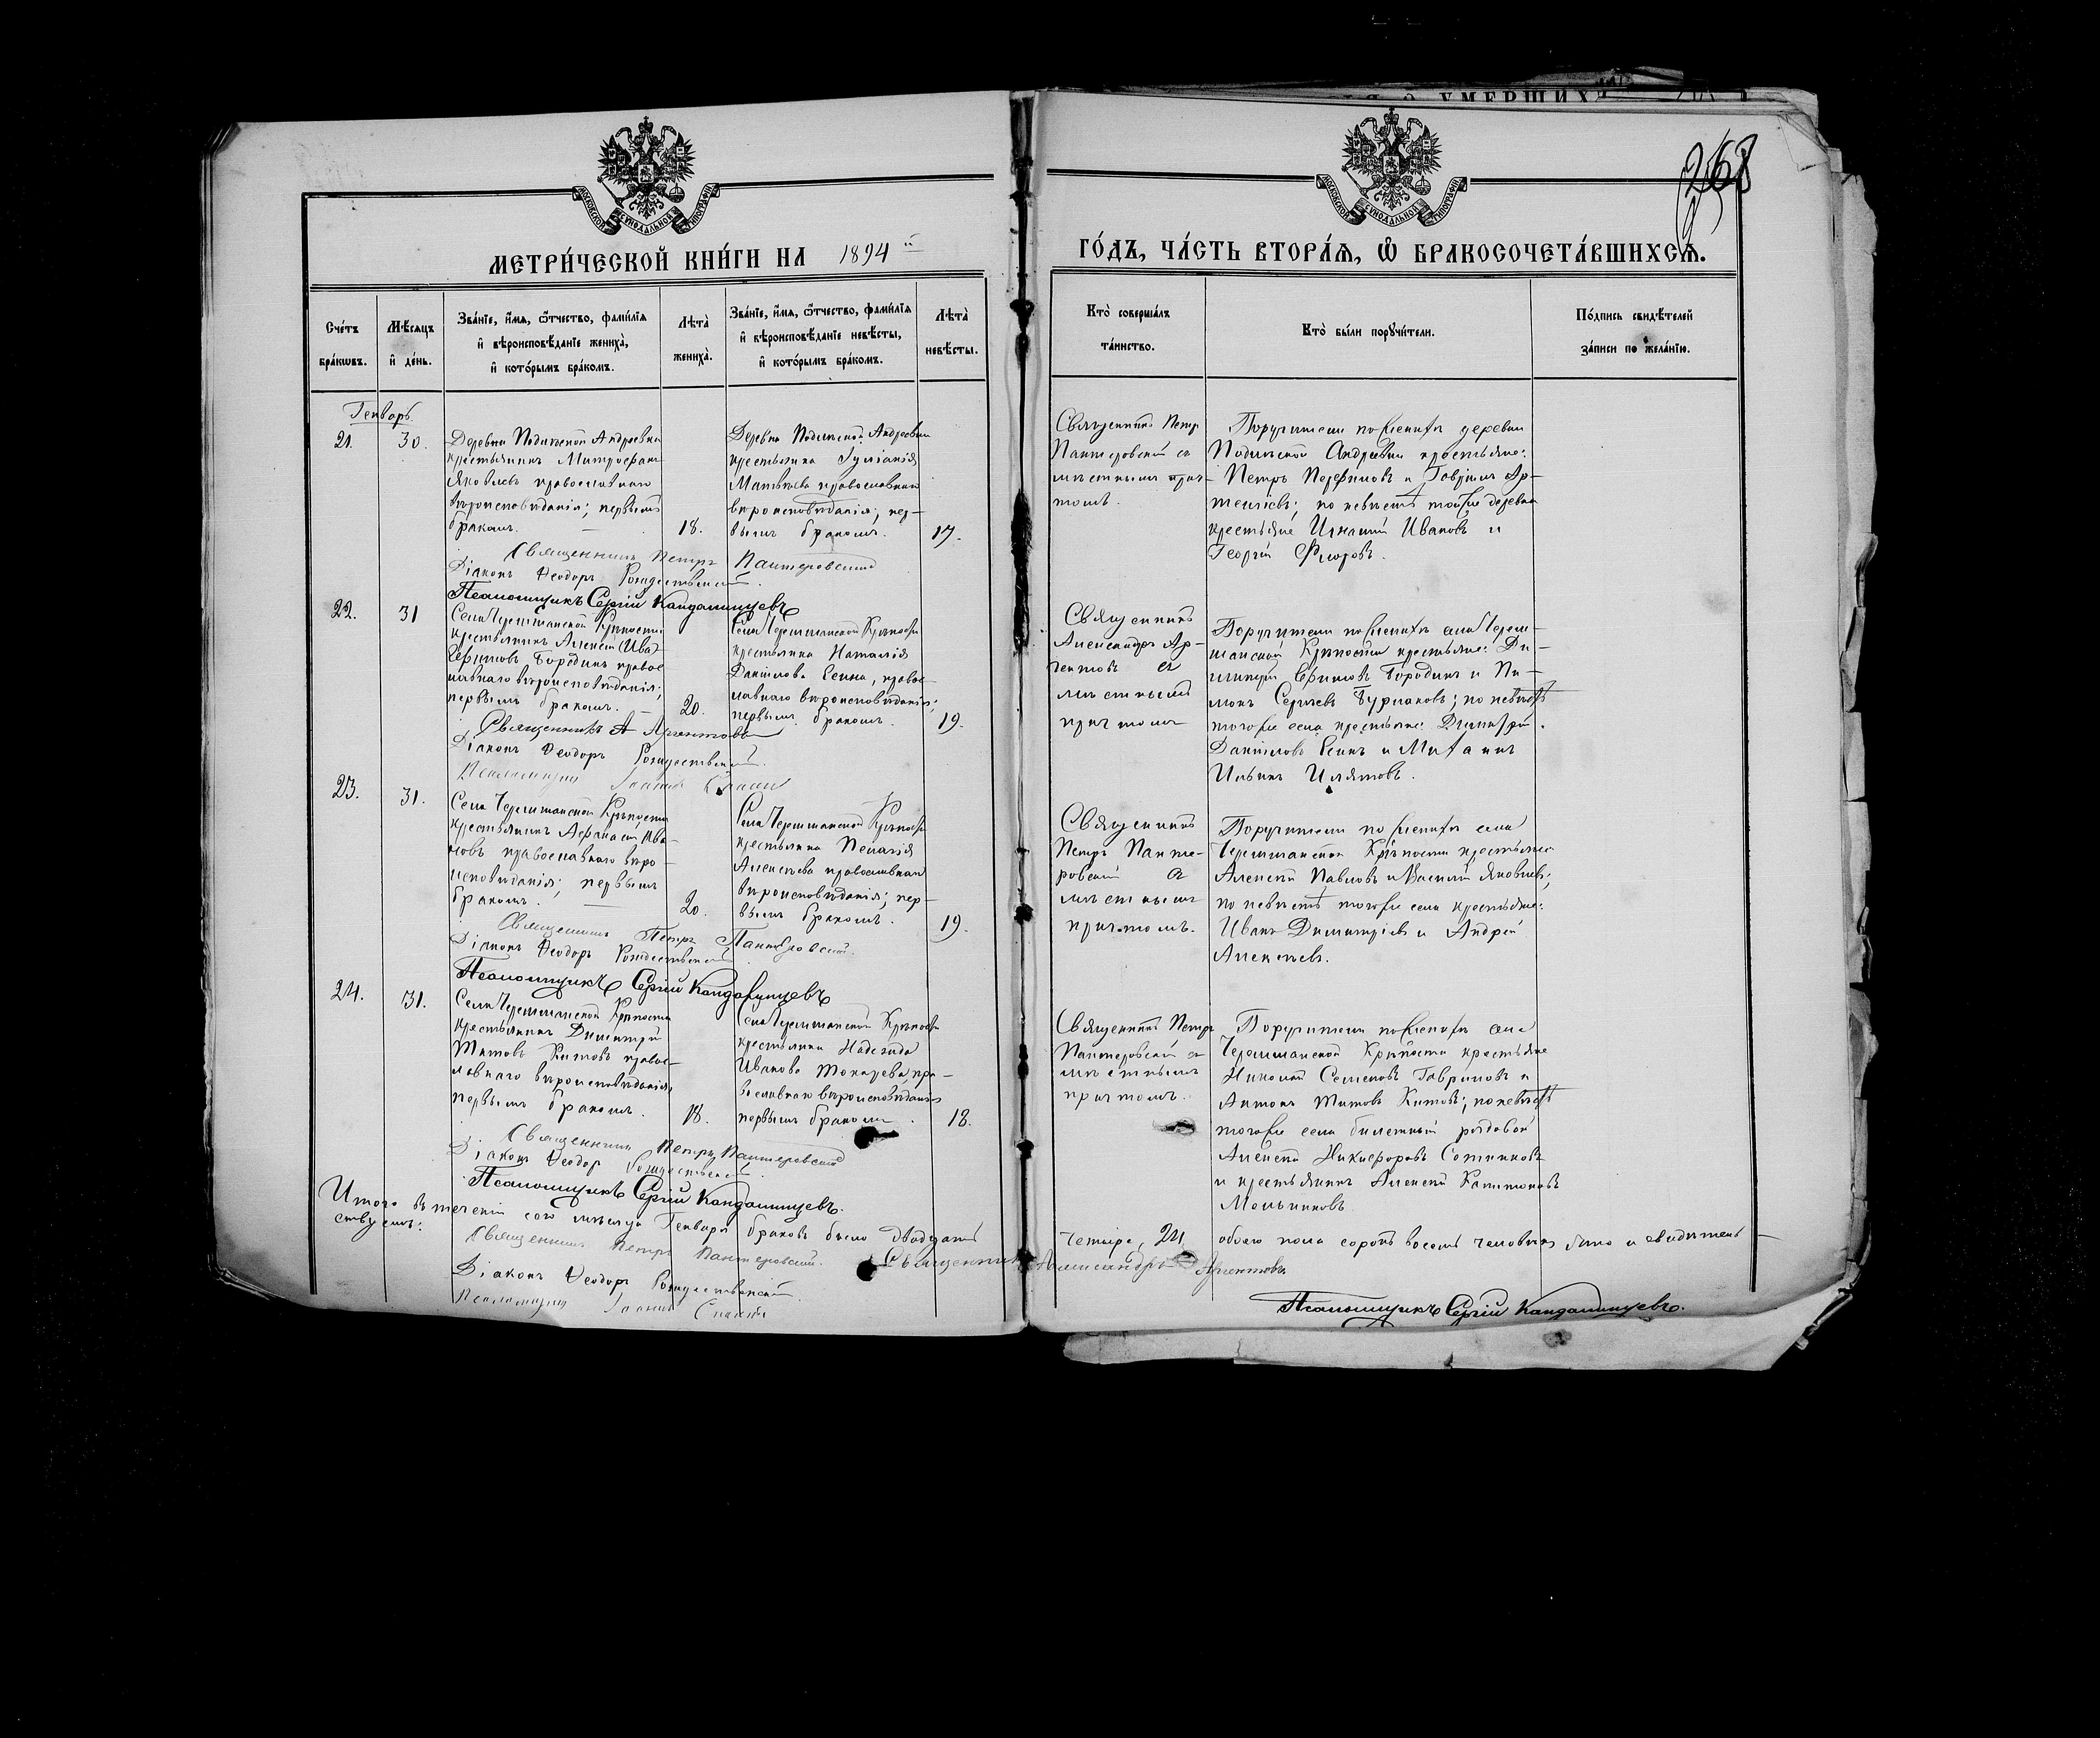 УМЕРШИХ
268
МОСКОВСКОЙ СѴНОДАЛЬНОЙ ТИПОГРАФІИ
МОСКОВСКОЙ СѴНОДАЛЬНОЙ ТИПОГРАФІИ
МЕТРИ́ЧЕСКОЙ КНИ́ГИ НА 1894 й
ГО́ДЪ, ЧА́СТЬ ВТОРА́Я, Ѿ БРАКОСОЧЕТА́ВШИХСЯ.
Сче́тъ
бра́кωвъ.
Мѣ́сяцъ
и҆ де́нь.
Зва́нїе, и҆́мя, ѻ҆́тчество, фами́лїя
и҆ вѣроисповѣ́данїе жениха̀,
и҆ кото́рымъ бра́комъ.
Лѣта̀
жениха̀.
Зва́нїе, и҆́мя, ѻ҆́тчество, фами́лїя
и҆ вѣроисповѣ́данїе невѣ́сты,
и҆ кото́рымъ бра́комъ.
Лѣта̀
невѣ́сты.
Кто̀ соверша́лъ
та́инство.
Кто̀ бы́ли порꙋчи́тели.
По́дпись свидѣ́телей
за́писи по жела́нїю.
Генварь.
21. 30.
Деревни Подлѣсной Андреевки
крестьянинъ Митрофанъ
Яковлевъ православнаго
вѣроисповѣданія; первымъ
бракомъ.
18.
Деревни Подлѣсной Андреевки
крестьянка Іуліанія
Матвѣева православнаго
вѣроисповѣданія; пер-
вымъ бракомъ.
17.
Священникъ Петръ
Пантеровскій съ
мѣстнымъ прич-
томъ.
Поручители по женихѣ деревни
Подлѣсной Андреевки крестьяне:
Петръ Перфиловъ и Гавріилъ Ар-
темьевъ; по невѣстѣ той же деревни
крестьяне Игнатій Ивановъ и
Георгій Флоровъ.
Священникъ Петръ Пантеровскій
Діаконъ Ѳеодоръ Рождественскій.
Псаломщикъ Сергій Кандалинцевъ
22. 31
Села Черемшанской Крѣпости
крестьянинъ Алексій
Ефимовъ Бородинъ правос-
лавнаго вѣроисповѣданія;
первымъ бракомъ.
20.
Села Черемшанской Крѣпости
крестьянка Наталія
Данілова Есина, правос-
лавнаго вѣроисповѣданія;
первымъ бракомъ.
19.
Священникъ
Александръ Ар-
гентовъ съ
мѣстнымъ
причтомъ
Поручители по женихѣ села Черем-
шанской Крѣпости крестьяне: Ди-
митрій Ефимовъ Бородинъ и Пи-
менъ Сергѣевъ Бурлаковъ; по невѣстѣ
того же села крестьяне Димитрій
Даніиловъ Есинъ и Михаилъ
Ильинъ
Священникъ А Аргентовъ
Діаконъ Ѳеодоръ Рождественскій.
Псаломщикъ Іоаннъ Спасскій
23. 31.
Села Черемшанской Крѣпости
крестьянинъ Аѳанасій Ива-
новъ православнаго вѣро-
исповѣданія; первымъ
бракомъ.
20.
Села Черемшанской Крѣпости
крестьянка Пелагія
Алексѣева православнаго
вѣроисповѣданія; пер-
вымъ бракомъ.
19.
Священникъ
Петръ Панте-
ровскій съ
мѣстнымъ
причтомъ.
Поручители по женихѣ села
Черемшанской Крѣпости крестьяне
Алексій Павловъ и Василій Яковлевъ;
по невѣстѣ того же села крестьяне:
Иванъ Димитріевъ и Андрей
Алексѣевъ.
Священникъ Петръ Пантеровскій.
Діаконъ Ѳеодоръ Рождественскій
Псаломщикъ Сергій Кандалинцевъ
24. 31.
Села Черемшанской Крѣпости
крестьянинъ Димитрій
Титовъ Китовъ правос-
лавнаго вѣроисповѣданія,
первымъ бракомъ.
18.
Села Черемшанской Крѣпости
крестьянка Надежда
Иванова Токарева, пра-
вославнаго вѣроисповѣданія
первымъ бракомъ.
18.
Священникъ Петръ
Пантеровскій съ
мѣстнымъ
причтомъ.
Поручители по женихѣ села
Черемшанской Крѣпости крестьяне
Николай Семеновъ Гавриловъ и
Антонъ Титовъ Китовъ; по невѣстѣ
того же села билетный рядовой
Алексій Никифоровъ Сотниковъ
и крестьянинъ Алексій Капитоновъ
Мельниковъ.
Священникъ Петръ Пантеровскій
Діаконъ Ѳеодоръ Рождественскій.
Псаломщикъ Сергій Кандалинцевъ.
Итого въ теченіи сего мѣсяца Генваря браковъ было двадцать четыре, 24. обоего пола сорокъ восемь человѣкъ
ствуемъ:
Священникъ Петръ Пантеровскій. Священникъ Александръ Аргентовъ
Діаконъ Ѳеодоръ Рождественскій.
Псаломщикъ Іоаннъ Спасскій
Псаломщикъ Сергій Кандалинцевъ.